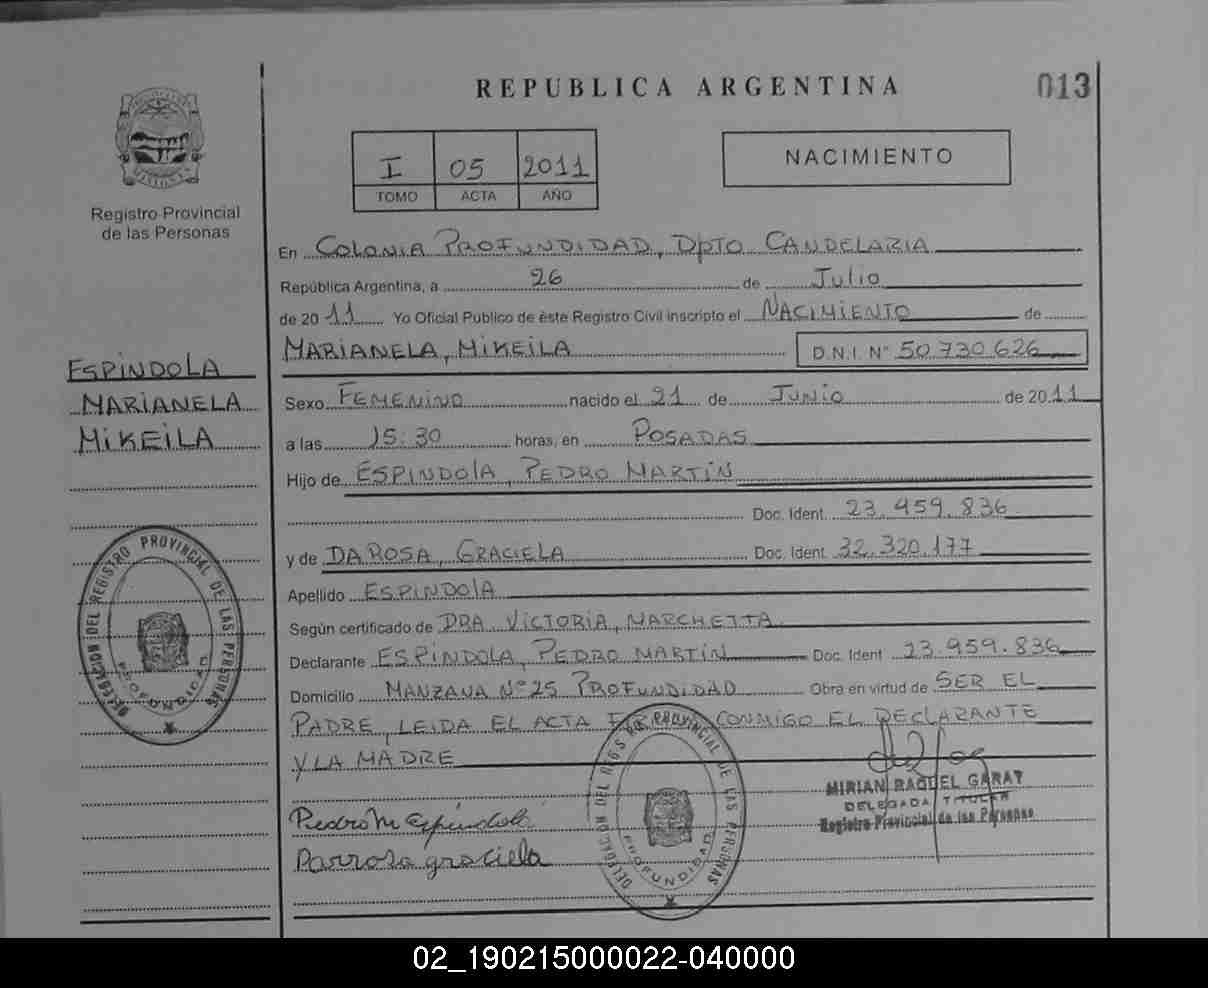 REPUBLICA ARGENTINA
013
I 05 2011
TOMO ACTA AÑO
NACIMIENTO
Registro Provincial
de las Personas
ESPINDOLA
MARIANELA
MIKEILA
En COLONIA PROFUNDIDAD, DPTO CANDELARIA
República Argentina, a 26 de Julio
de 2011 Yo Oficial Publico de èste Registro Civil inscripto el NACIMIENTO de
MARIANELA, MIKEILA D.N.I. N° 50.730.626
Sexo FEMENINO nacido el 21 de JUNIO de 2011
a las 15:30 horas, en POSADAS
Hijo de ESPINDOLA, PEDRO MARTIN
Doc. Ident. 23.959.836
y de DA ROSA, GRACIELA Doc. Ident. 32.320.177
Apellido ESPINDOLA
Según certificado de DRA. VICTORIA, MARCHETTA
Declarante ESPINDOLA, PEDRO MARTIN Doc. Ident 23.959.836
Domicilio MANZANA N°25 PROFUNDIDAD Obra en virtud de SER EL
PADRE, LEIDA EL ACTA CONMIGO EL DECLARANTE
Y LA MADRE
MIRIAN RAQUEL GARAY
DELEGADA TITULAR
Registro Provincial de las Personas
Pedro M Espindola
Darrosa graciela
DELEGACION DEL REGISTRO PROVINCIAL DE LAS PERSONAS
PROFUNDIDAD
DELEGACION DEL REGIS PROVINCIAL DE LAS PERSONAS
PROFUNDIDAD
02_190215000022-040000